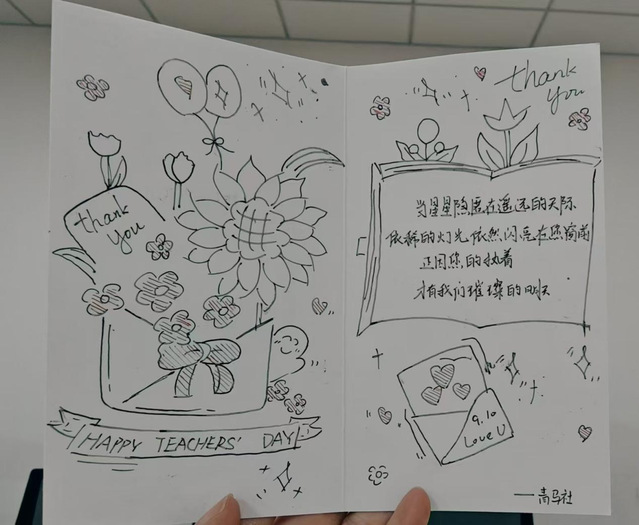 thank
you
HAPPY TEACHERS' DAY
thank
you
当星星隐匿在遥远的天际
依稀的灯光依然闪亮在您窗前
正因您的执着
才有我们璀璨的明天
9.10
Love U
——青马社